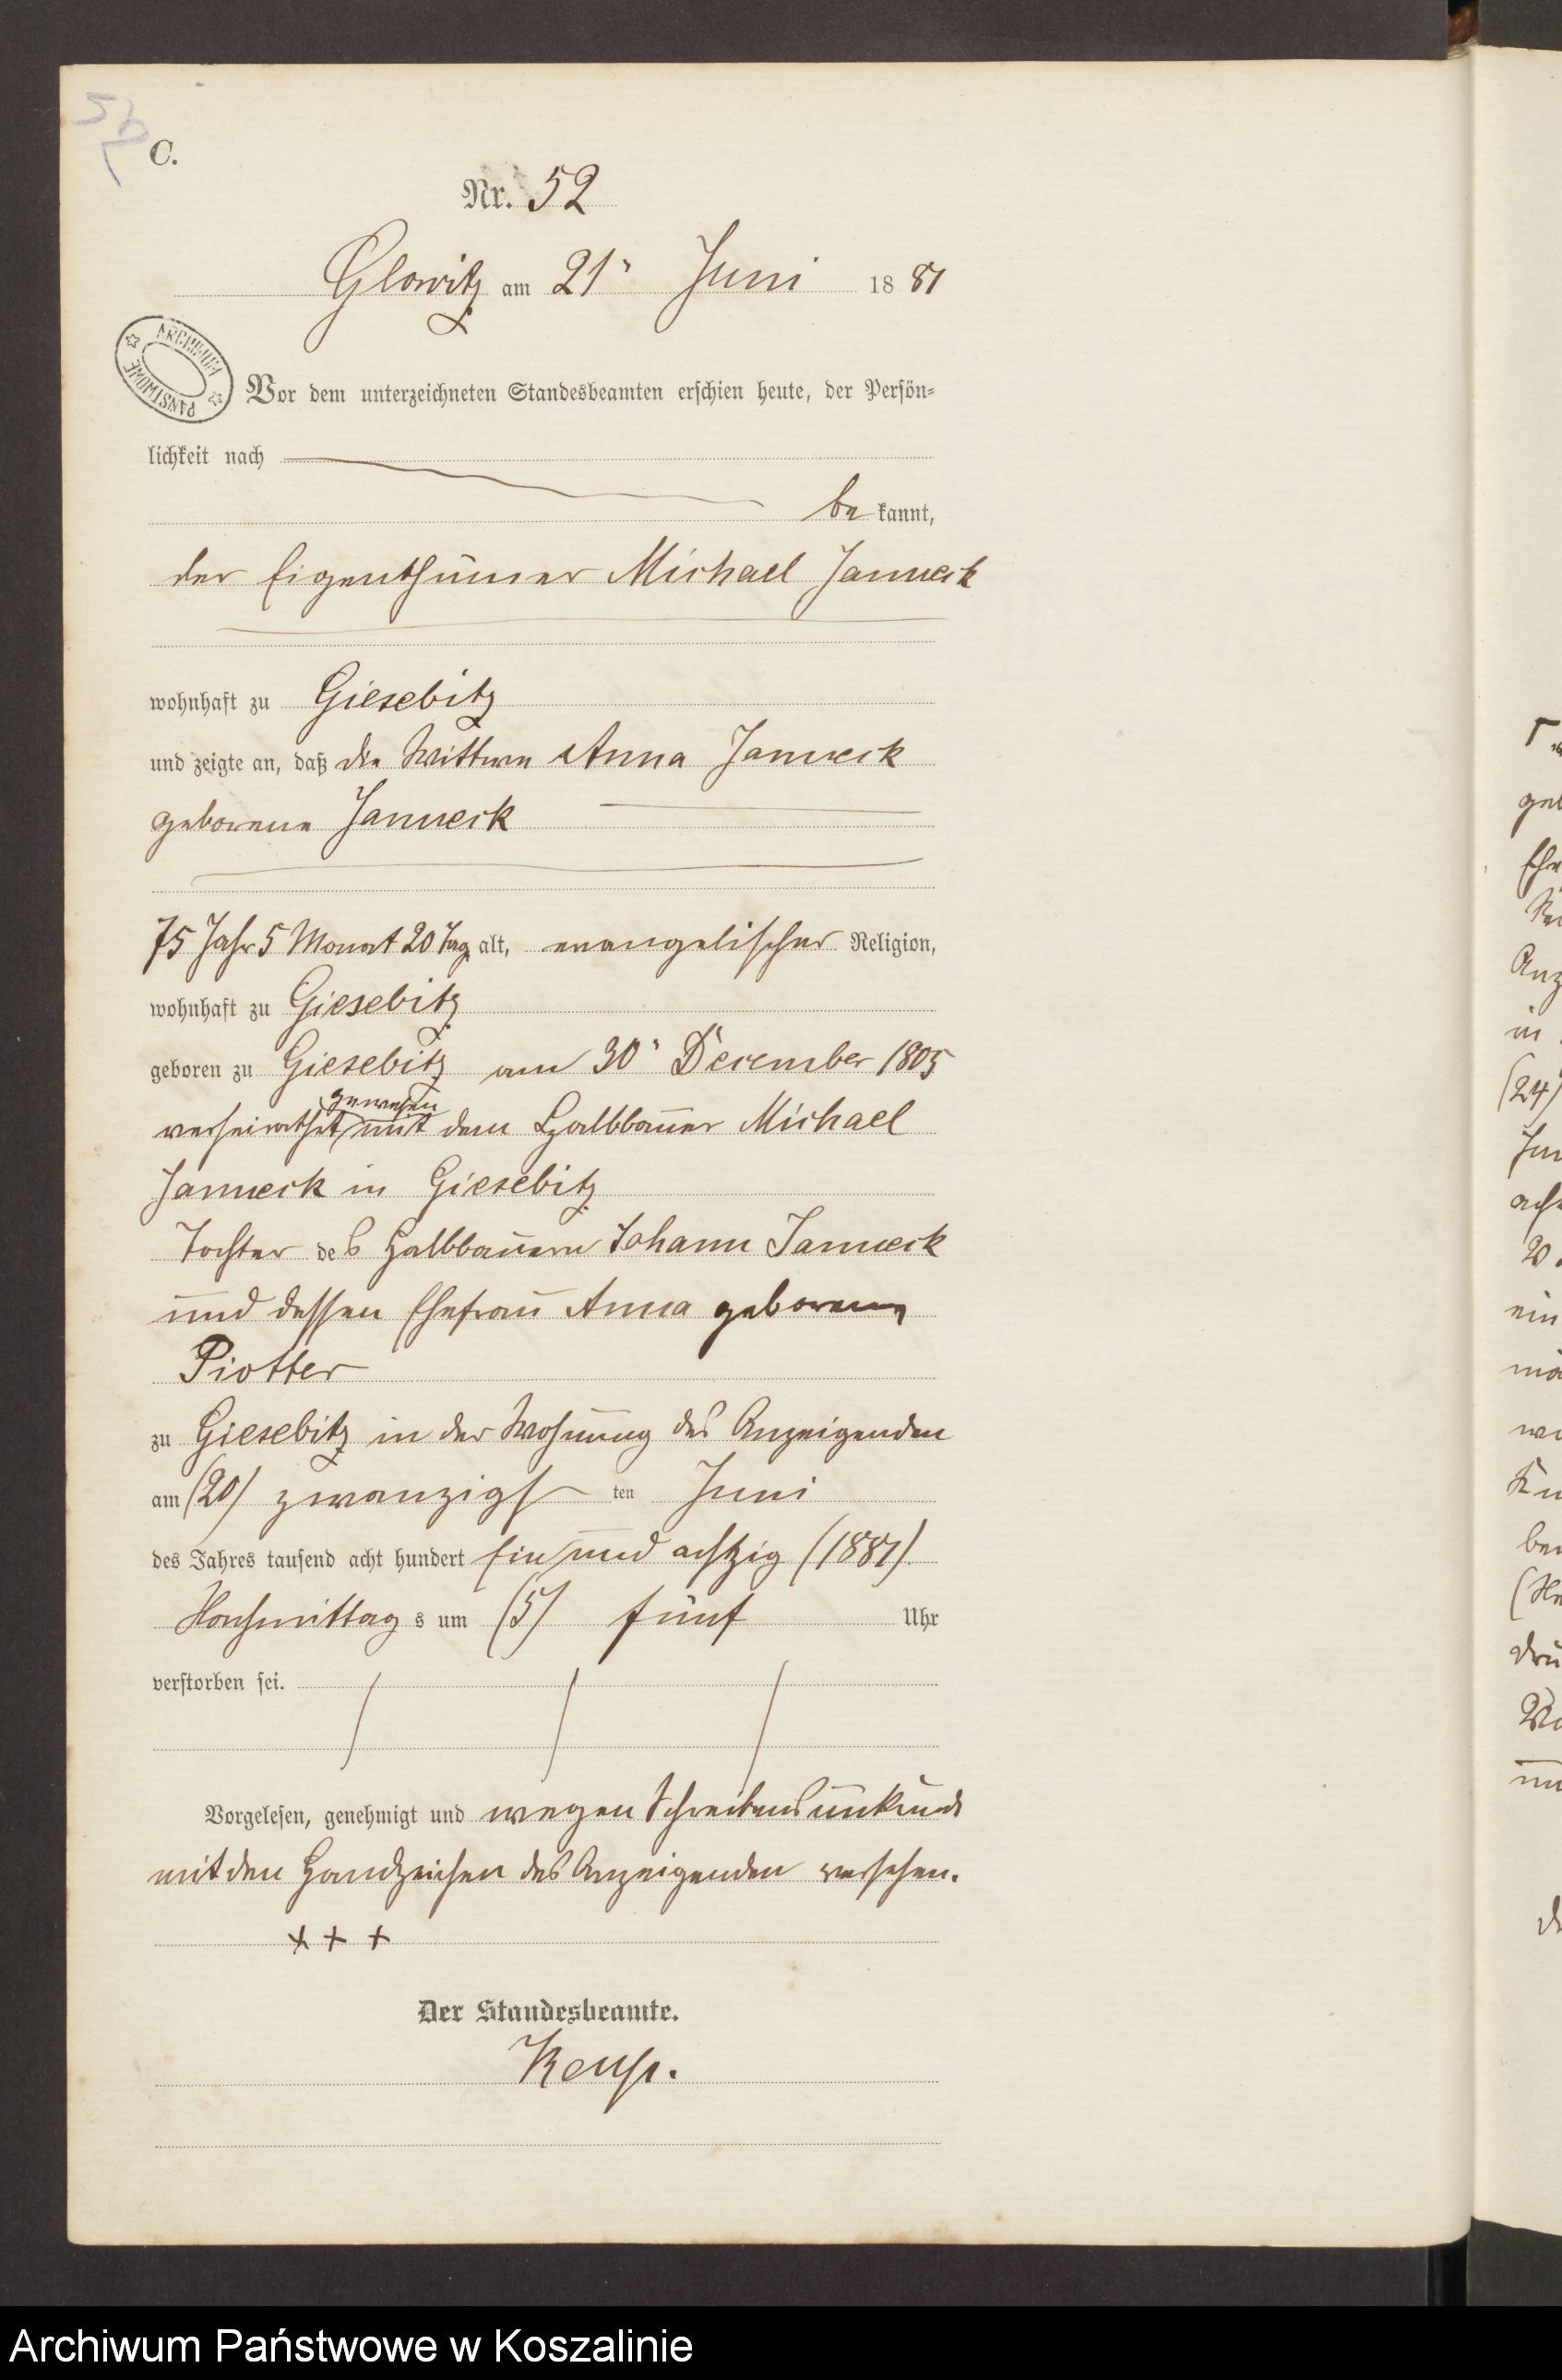 C.
Nr. 52
Glowitz am 21" Juni 1881
ARCHIWUM PAŃSTWOWE
Vor dem unterzeichneten Standesbeamten erschien heute, der Persön-
lichkeit nach
be kannt,
der Eigenthümer Michael Janneck
wohnhaft zu Giesebitz
und zeigte an, daß die Wittwe Anna Janneck
geborene Janneck
75 Jahr 5 Monat 20 Tag alt, evangelischer Religion,
wohnhaft zu Giesebitz
geboren zu Giesebitz am 30" December 1805
gewesen
verheirathet mit dem Halbbauer Michael
Janneck in Giesebitz
Tochter des Halbbauern Johann Janneck
und dessen Ehefrau Anna geborene
Piotter
zu Giesebitz in der Wohnung des Anzeigenden
am (20) zwanzigsten Juni
des Jahres tausend acht hundert Ein und achtzig (1881)
Nachmittags um (5) fünf Uhr
verstorben sei.
Vorgelesen, genehmigt und wegen Schreibensunkunde
mit den Handzeichen des Anzeigenden versehen.
+ + +
Der Standesbeamte.
Archiwum Państwowe w Koszalinie